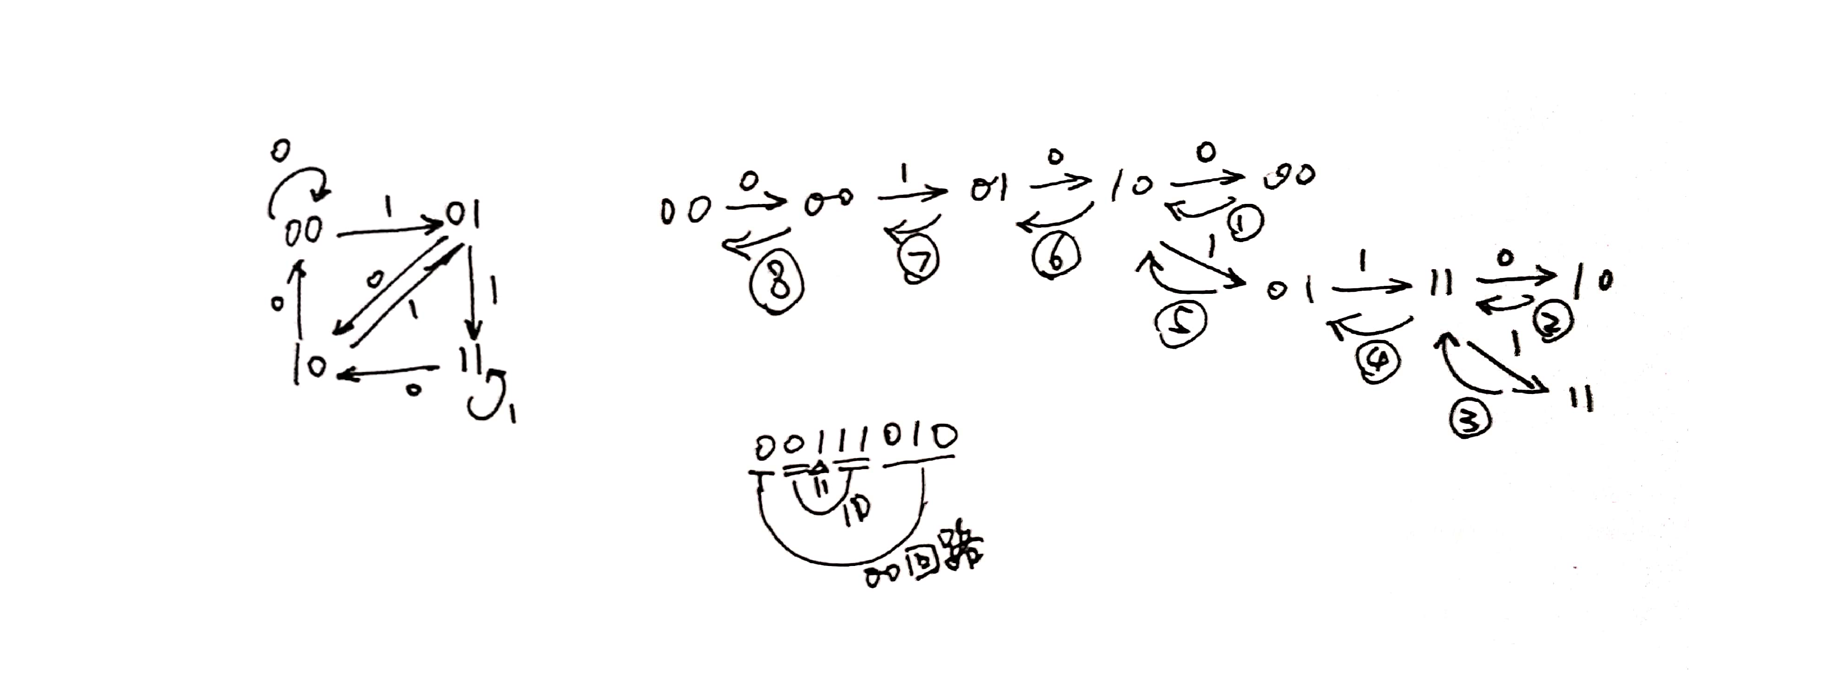 0
00 1 01
0 0 1 1
10 0 11 1
00 0 00 1 01 0 10 0 00
⑧ ⑦ ⑥ ①
1 01 1 11 0 10
⑤ ④ ②
1 11
③
00111010
11
10
00回路